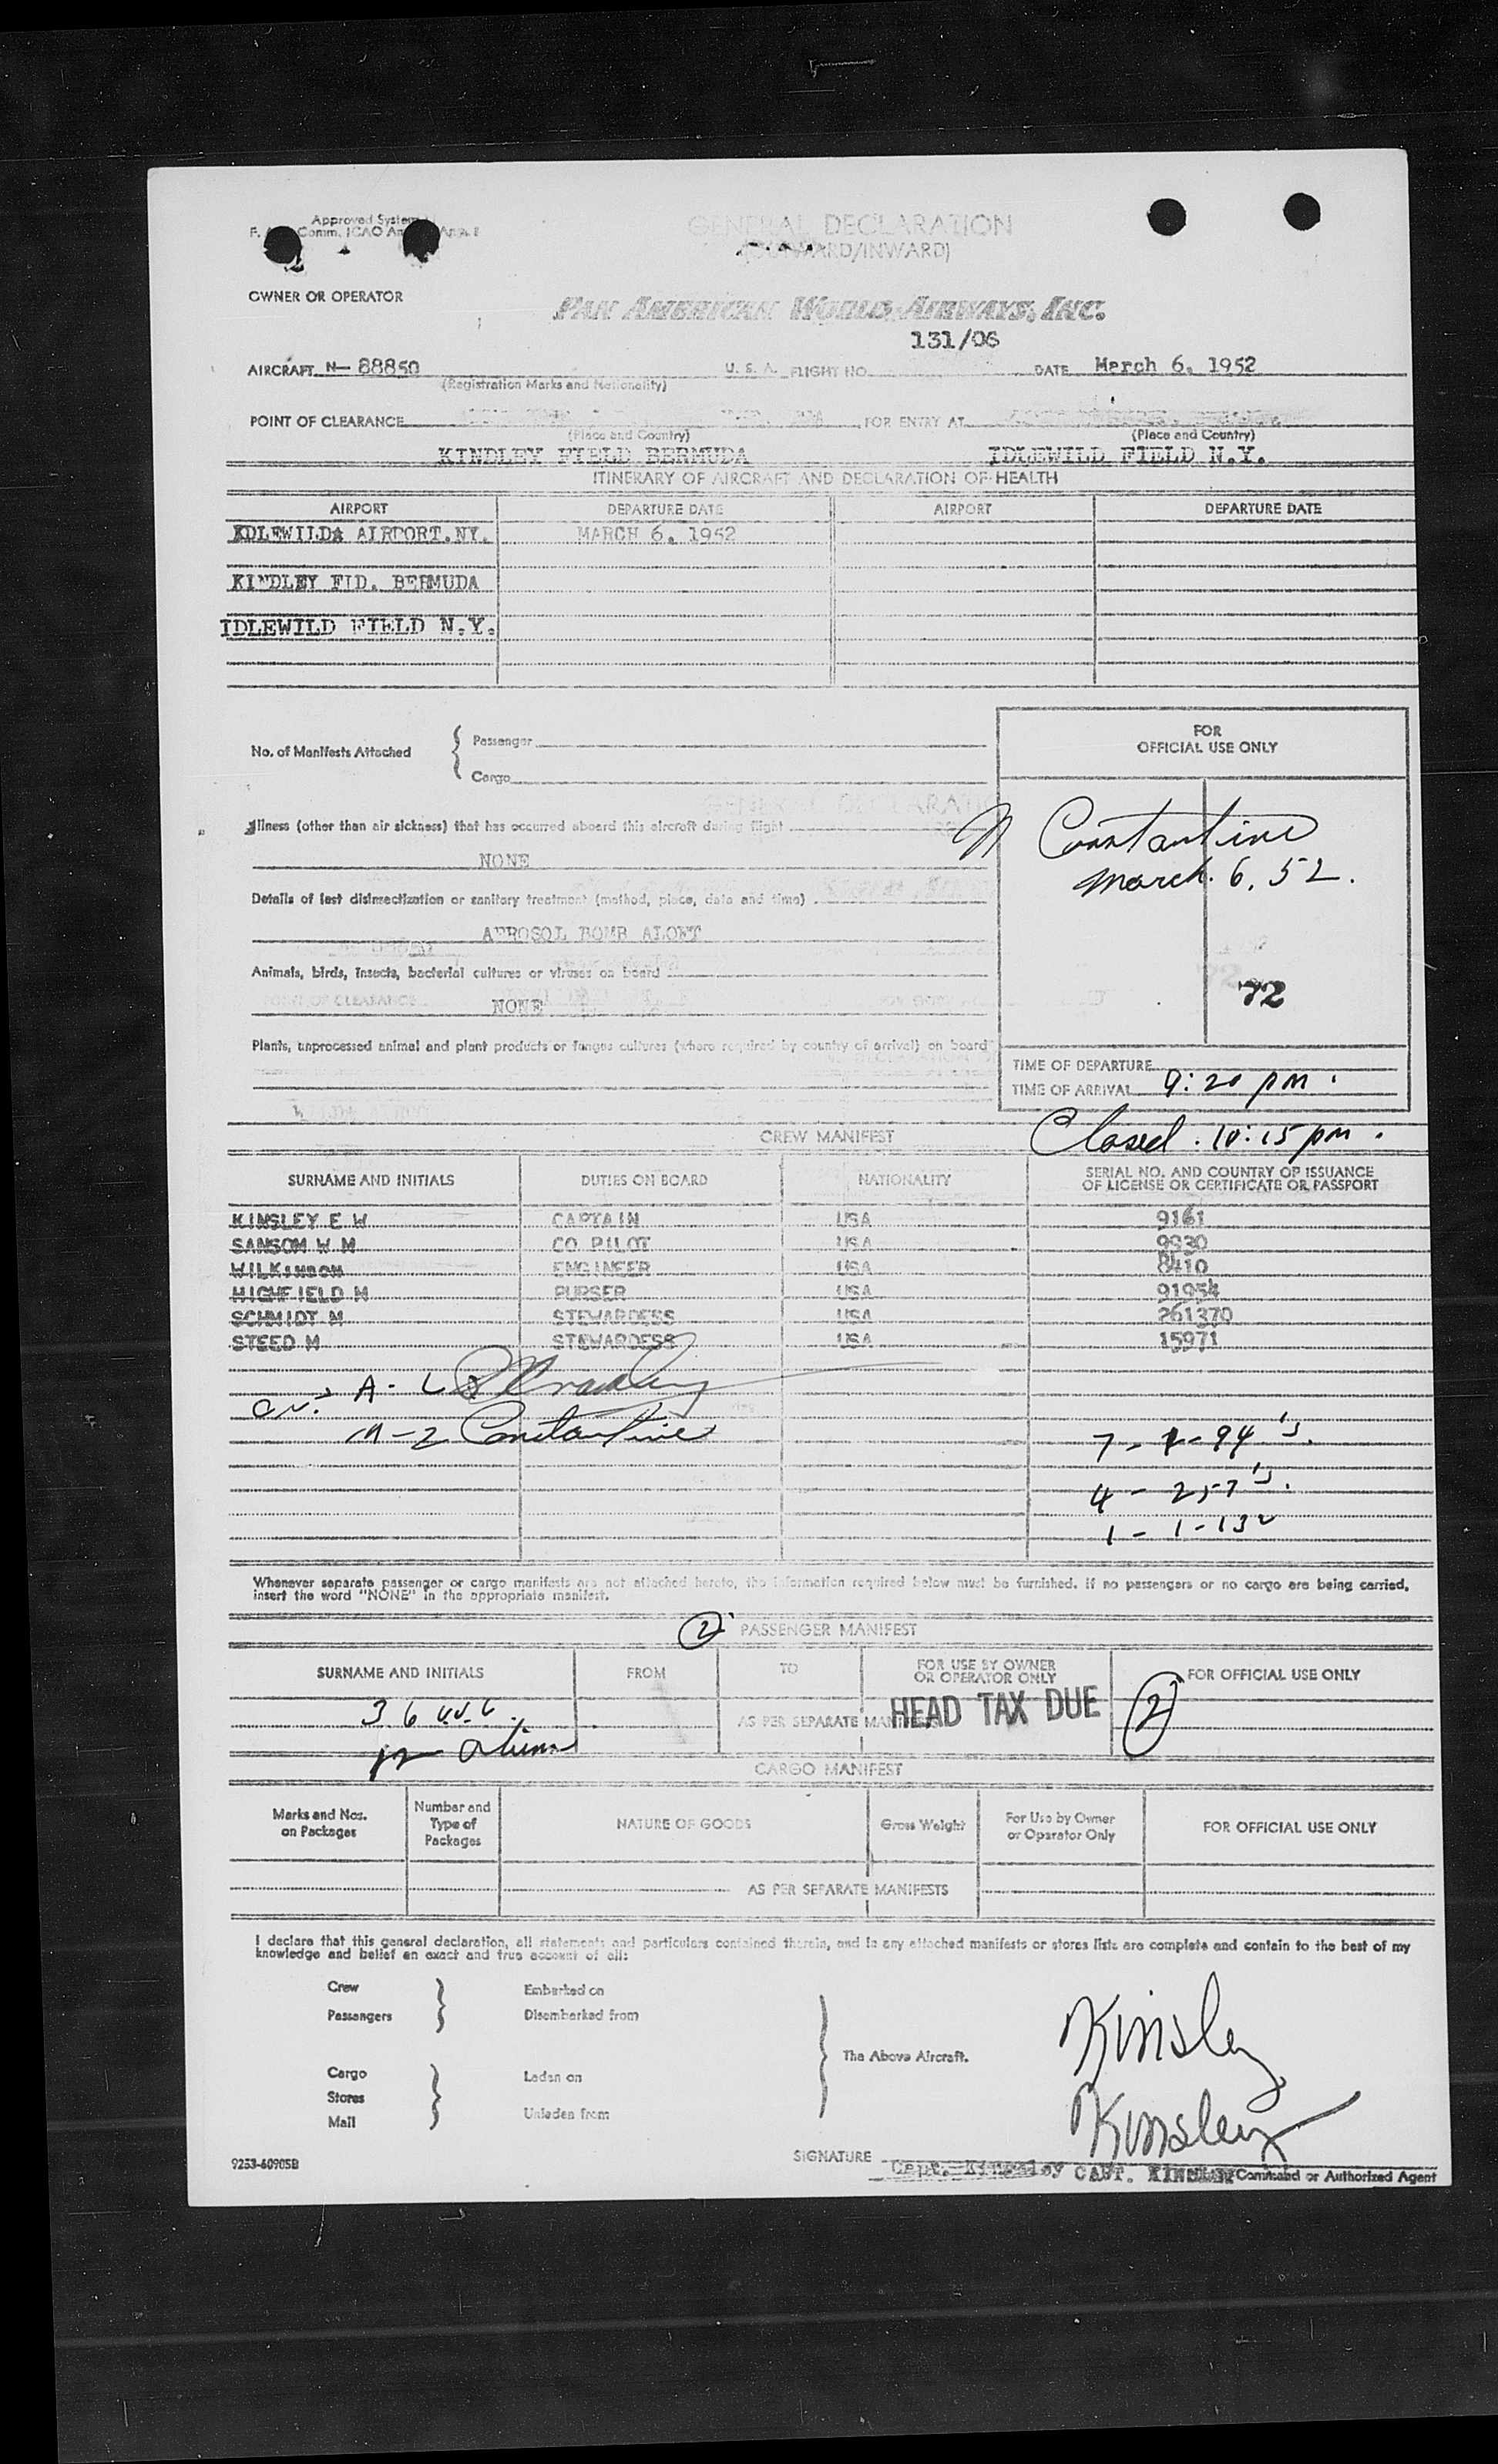 Approved System
F. Comm. ICAO An
GENERAL DECLARATION
(OUTWARD/INWARD)
OWNER OR OPERATOR
PAN AMERICAN WORLD AIRWAYS, INC.
131/06
AIRCRAFT N- 88850 U. S. A. FLIGHT NO. DATE March 6, 1952
(Registration Marks and Nationality)
POINT OF CLEARANCE FOR ENTRY AT
(Place and Country) (Place and Country)
KINDLEY FIELD BERMUDA IDLEWILD FIELD N.Y.
ITINERARY OF AIRCRAFT AND DECLARATION OF HEALTH
AIRPORT DEPARTURE DATE AIRPORT DEPARTURE DATE
AIRPORT.NY. MARCH 6, 1952
KINDLEY FID. BERMUDA
IDLEWILD FIELD N.Y.
No. of Manifests Attached { Passenger
Cargo
FOR
OFFICIAL USE ONLY
Illness (other than air sickness) that has occurred aboard this aircraft during flight
NONE
N Constantine
March. 6, 52.
Details of last disinsectization or sanitary treatment (method, place, date and time)
AEROSOL BOMB ALOWT
Animals, birds, insects, bacterial cultures or viruses on board
NONE
72
Plants, unprocessed animal and plant products or fungus cultures (where required by country of arrival) on board
TIME OF DEPARTURE
TIME OF ARRIVAL 9:20 pm.
Closed. 10:15 pm.
CREW MANIFEST
SURNAME AND INITIALS DUTIES ON BOARD NATIONALITY SERIAL NO. AND COUNTRY OF ISSUANCE
OF LICENSE OR CERTIFICATE OR PASSPORT
KINSLEY E W CAPTAIN USA 9161
SANSOM W M CO PILOT USA 9930
WILKINSON ENGINEER USA 8410
HIGHFIELD M PURSER USA 91954
SCHMIDT M STEWARDESS USA 261370
STEED M STEWARDESS USA 15971
A-
M-2 Constantine
7 - 1-94's.
4 - 257's.
1 - 1-132
Whenever separate passenger or cargo manifests are not attached hereto, the information required below must be furnished. If no passengers or no cargo are being carried,
insert the word "NONE" in the appropriate manifest.
2 PASSENGER MANIFEST
SURNAME AND INITIALS FROM TO FOR USE BY OWNER
OR OPERATOR ONLY FOR OFFICIAL USE ONLY
36 U.S.C.
AS PER SEPARATE MANIFESTS HEAD TAX DUE 2
12 Aliens
CARGO MANIFEST
Marks and Nos.
on Packages Number and
Type of
Packages NATURE OF GOODS Gross Weight For Use by Owner
or Operator Only FOR OFFICIAL USE ONLY
AS PER SEPARATE MANIFESTS
I declare that this general declaration, all statements and particulars contained therein, and in any attached manifests or stores lists are complete and contain to the best of my
knowledge and belief an exact and true account of all:
Crew Embarked on
Passengers Disembarked from
The Above Aircraft.
Cargo Laden on
Stores
Mail Unladen from
Kinsley
Kinsley
SIGNATURE Capt. Kinsley CAPT. KINSLEY Command or Authorized Agent
9253-60905B